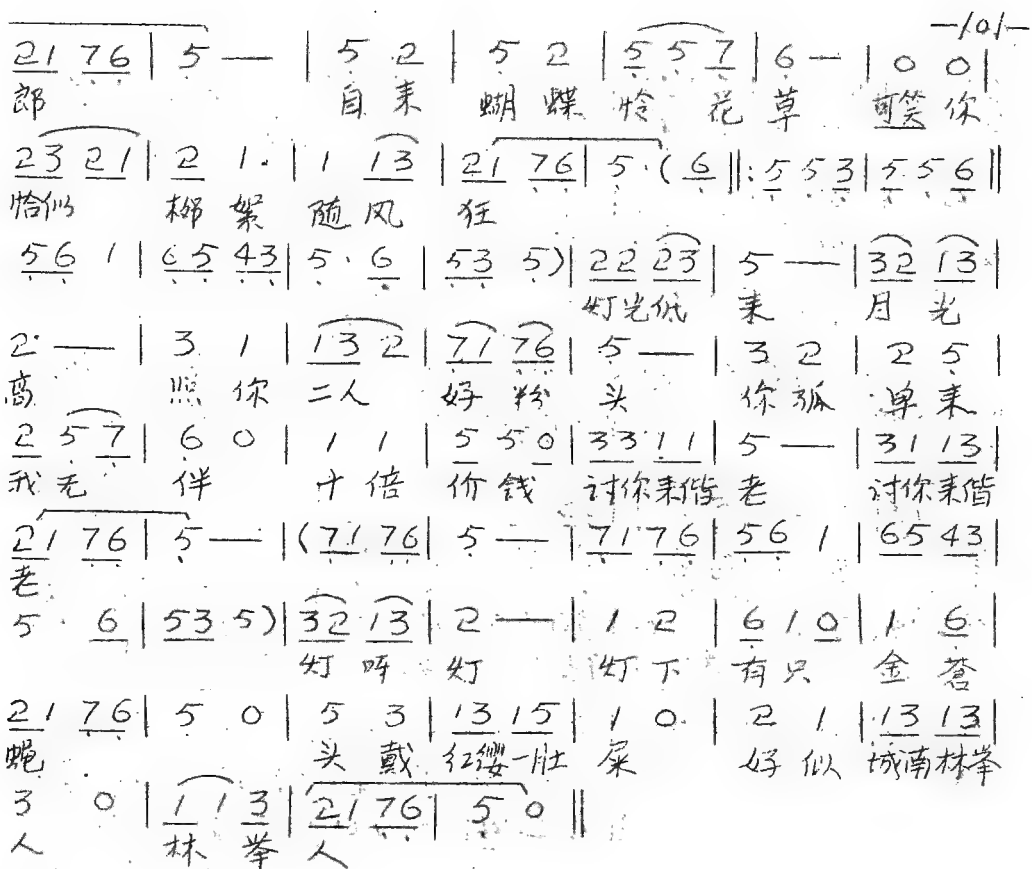 —101—
21 76 | 5 — | 5 2 | 5 2 | 5 5 7 | 6 — | 0 0 |
郎 自来 蝴蝶 怜 花 草 可笑 你
23 21 | 2 1. | 1 13 | 21 76 | 5. (6 ‖: 5 5 3 | 5 5 6 ‖
恰似 柳絮 随风 狂
56 1 | 65 43 | 5. 6 | 53 5) | 22 23 | 5 — | 32 13 |
灯光低 来 月光
2 — | 3 1 | 13 2 | 71 76 | 5 — | 3 2 | 2 5 |
高 照你 二人 好粉 头 你孤 单来
2 5 7 | 6 0 | 1 1 | 5 5 0 | 33 11 | 5 — | 31 13 |
我无 伴 十倍 价钱 讨你来偕 老 讨你来偕
21 76 | 5 — | (71 76 | 5 — | 71 76 | 56 1 | 65 43 |
老
5. 6 | 53 5) | 32 13 | 2 — | 1 2 | 6 1 0 | 1 6 |
灯呀 灯 灯下 有只 金苍
21 76 | 5 0 | 5 3 | 13 15 | 1 0 | 2 1 | 13 13 |
蝇 头戴 红缨一肚 屎 好似 城南林举
3 0 | 1 1 3 | 21 76 | 5 0 ‖
人 林举 人